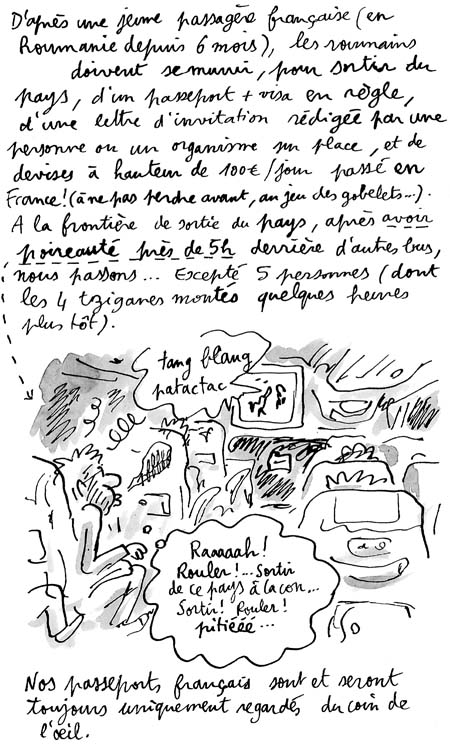 D'après une jeune passagère française (en
Roumanie depuis 6 mois), les roumains
doivent se munir, pour sortir du
pays, d'un passeport + visa en règle,
d'une lettre d'invitation rédigée par une
personne ou un organisme sur place, et de
devises à hauteur de 100€/jour passé en
France! (à ne pas perdre avant, au jeu des gobelets...).
A la frontière de sortie du pays, après avoir
poireauté près de 5h derrière d'autres bus,
nous passons... Excepté 5 personnes (dont
les 4 tziganes montés quelques heures
plus tôt).
tang blang
patactac
Raaaaah!
Rouler!... Sortir
de ce pays à la con...
Sortir! Rouler!
pitiééé...
Nos passeports français sont et seront
toujours uniquement regardés du coin de
l'œil.